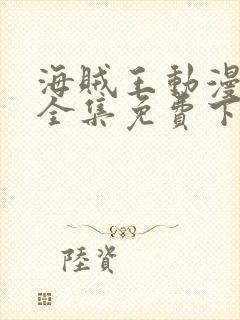 海賊王動漫
全集免費下
陸資